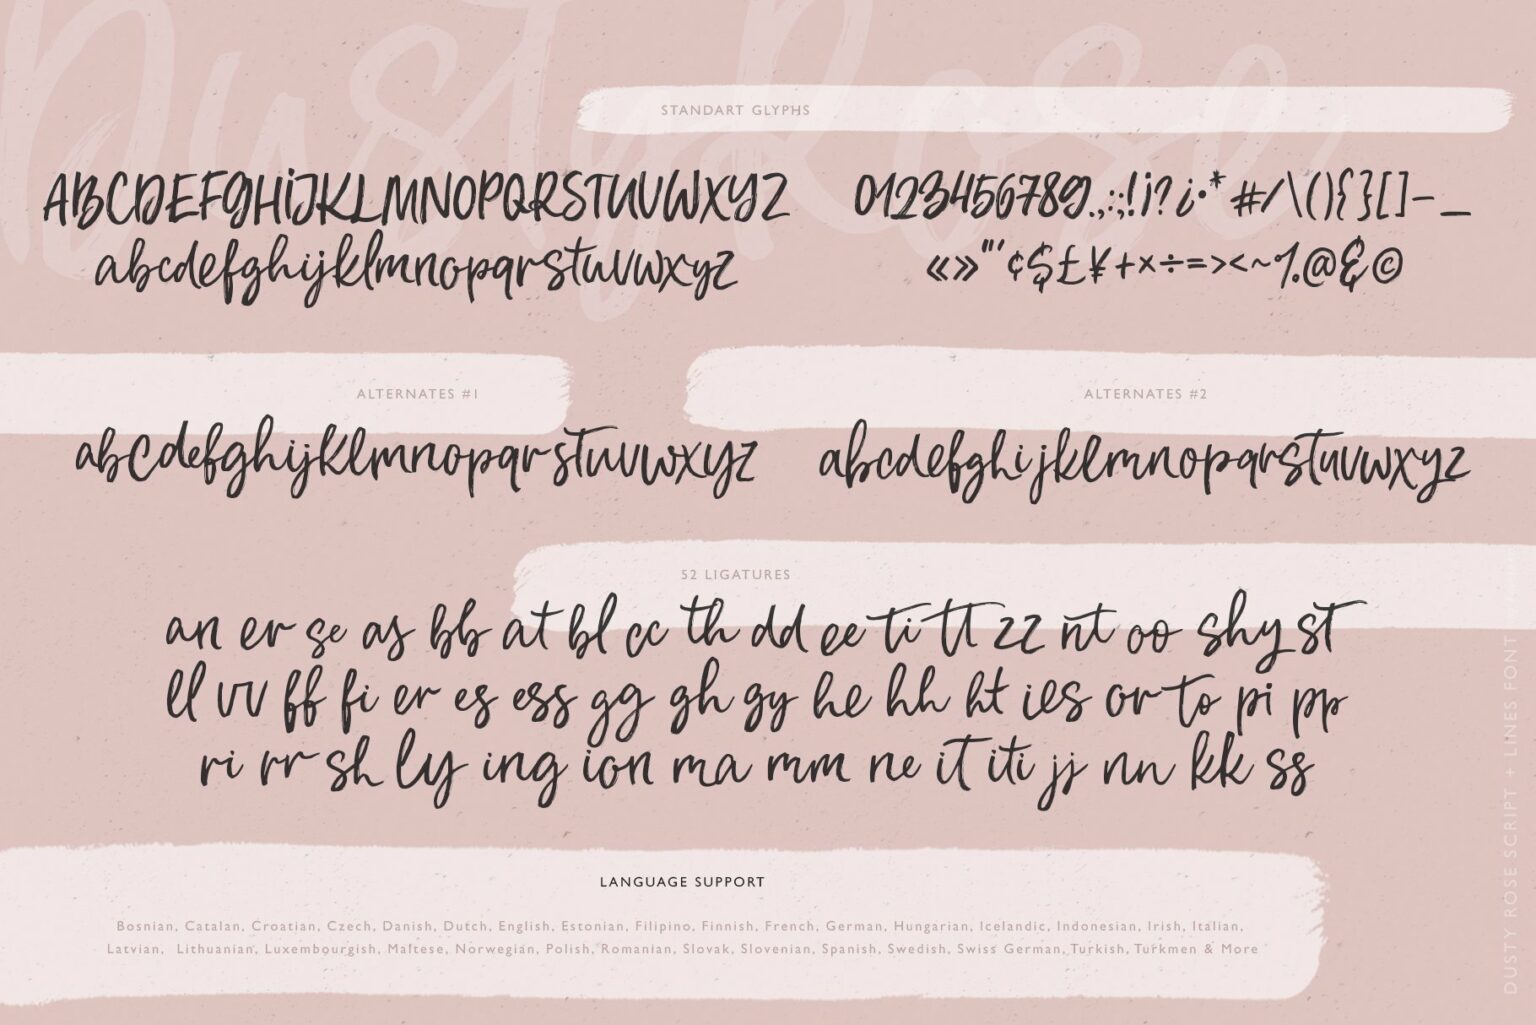 Dusty Rose
STANDART GLYPHS
ABCDEFGHIJKLMNOPQRSTUVWXYZ
abcdefghijklmnopqrstuvwxyz
0123456789.,:;!¡?¿•*#/\(){}[]-_
«»"'¢$£¥+×÷=><~%@&©
ALTERNATES #1
abcdefghijklmnopqrstuvwxyz
ALTERNATES #2
abcdefghijklmnopqrstuvwxyz
52 LIGATURES
an er se as bb at bl cc th dd ee ti tt zz nt oo shy st
ll vv ff fi er es ess gg gh gy he hh ht ies or to pi pp
ri rr sh ly ing ion ma mm ne it iti jj nn kk ss
LANGUAGE SUPPORT
Bosnian, Catalan, Croatian, Czech, Danish, Dutch, English, Estonian, Filipino, Finnish, French, German, Hungarian, Icelandic, Indonesian, Irish, Italian,
Latvian, Lithuanian, Luxembourgish, Maltese, Norwegian, Polish, Romanian, Slovak, Slovenian, Spanish, Swedish, Swiss German, Turkish, Turkmen & More
DUSTY ROSE SCRIPT + LINES FONT